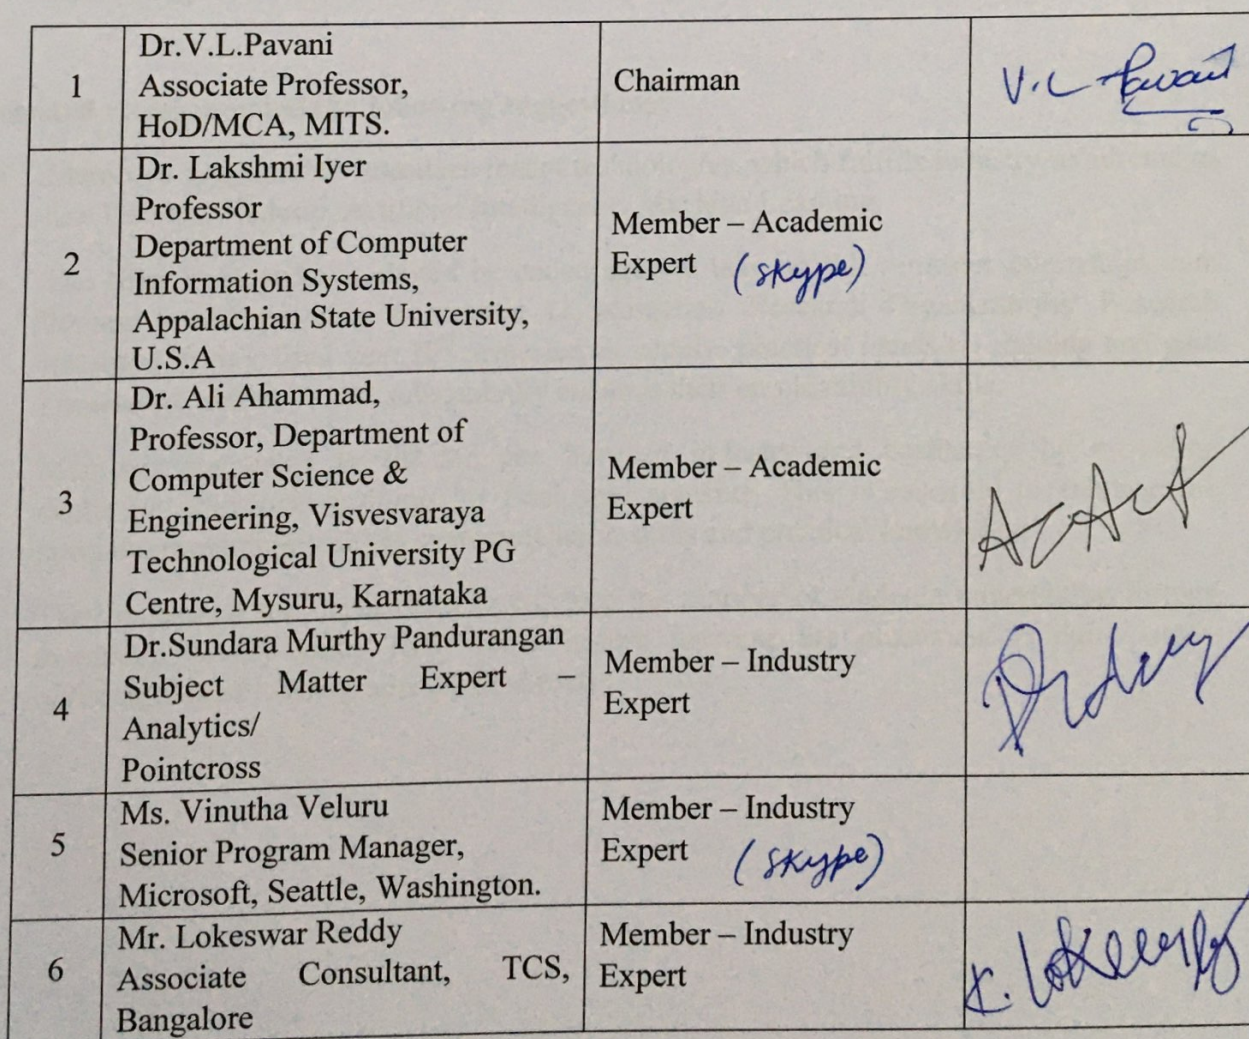 1
Dr.V.L.Pavani
Associate Professor,
HoD/MCA, MITS.
Chairman
V.L Pavani
2
Dr. Lakshmi Iyer
Professor
Department of Computer
Information Systems,
Appalachian State University,
U.S.A
Member – Academic
Expert (skype)
3
Dr. Ali Ahammad,
Professor, Department of
Computer Science &
Engineering, Visvesvaraya
Technological University PG
Centre, Mysuru, Karnataka
Member – Academic
Expert
4
Dr.Sundara Murthy Pandurangan
Subject Matter Expert –
Analytics/
Pointcross
Member – Industry
Expert
5
Ms. Vinutha Veluru
Senior Program Manager,
Microsoft, Seattle, Washington.
Member – Industry
Expert (skype)
6
Mr. Lokeswar Reddy
Associate Consultant, TCS,
Bangalore
Member – Industry
Expert